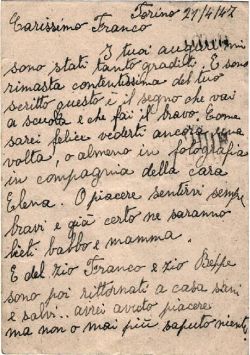 Torino 21/4/47
Carissimo Franco
I tuoi
sono stati tanto graditi. E sono
rimasta contentissima del tuo
scritto questo è il segno che vai
a scuola e che fai il bravo. Come
sarei felice vederti ancora una
volta, o almeno in fotografia
in compagnia della cara
Elena. O piacere sentirvi sempre
bravi e già certo ne saranno
lieti babbo e mamma.
E del zio Franco e zio Beppe
sono poi rittornati a casa sani
e salvi.. avrei avuto piacere
ma non o mai più saputo niente